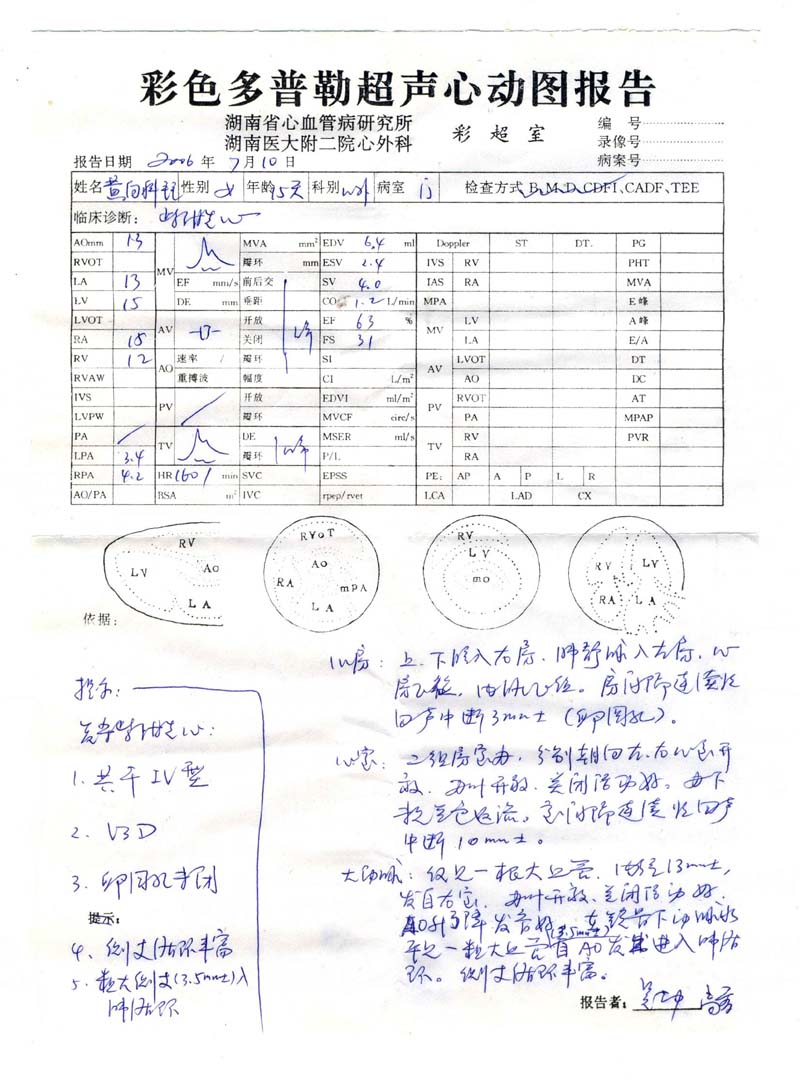 彩色多普勒超声心动图报告
湖南省心血管病研究所
湖南医大附二院心外科
彩超室
编号
录像号
病案号
报告日期 2006年7月10日
姓名 性别 女 年龄 15天 科别 病室 检查方式 B、M、D、CDFI、CADF、TEE
临床诊断:
AOmm 13 MV MVA mm² EDV 6.4 ml Doppler ST DT. PG
RVOT 瓣环 mm ESV 2.4 IVS RV PHT
LA 13 EF mm/s 前后交 SV 4.0 IAS RA MVA
LV 15 DE mm 垂距 CO 1.2 L/min MPA E峰
LVOT AV 开放 EF 63 % MV LV A峰
RA 18 关闭 FS 31 LA E/A
RV 12 AO 速率 / 瓣环 SI AV LVOT DT
RVAW 重搏波 幅度 CI L/m² AO DC
IVS PV 开放 EDVI ml/m² PV RVOT AT
LVPW 瓣环 MVCF circ/s PA MPAP
PA TV DE MSER ml/s TV RV PVR
LPA 3.4 瓣环 P/L RA
RPA 4.2 HR 160/min SVC EPSS PE: AP A P L R
AO/PA BSA m² IVC rpep/rvet LCA LAD CX
RV LV AO LA
RVOT AO RA mPA LA
RV LV mo
RV LV RA LA
依据:
心房:上、下腔入右房、肺静脉入左房、心
房正位,内脏正位。房间隔连续性
回声中断3mm±(卵圆孔)。
心室:二组房室瓣,分别朝向左、右心室开
放,瓣叶开放、关闭活动好。瓣下
室间隔连续性回声
中断10mm±。
大动脉:仅见一根大血管,内径13mm±,
发自右室,瓣叶开放、关闭活动好,
AO升弓降发育好,
见一粗大血管(3.5mm±)自AO发出进入肺循
环。侧支循环丰富。
提示:
1. 共干IV型
2. VSD
3. 卵圆孔未闭
提示:
4、侧支循环丰富
5、粗大侧支(3.5mm±)入
肺循环
报告者: